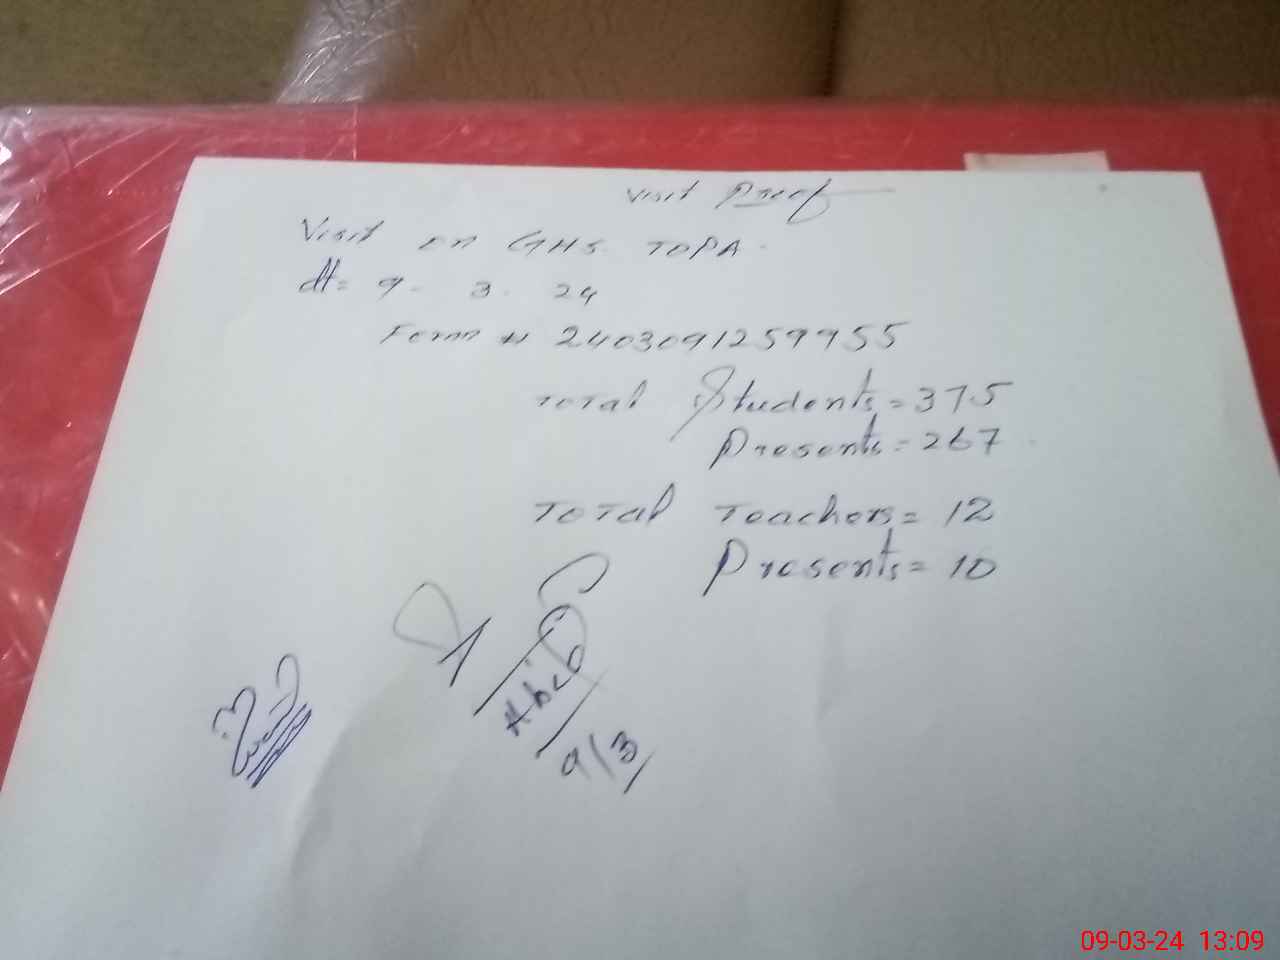 Visit Proof
Visit on GHS. TOPA.
dt= 9- 3. 24
Form # 2403091259955
Total Students = 375
Presents = 267
Total Teachers = 12
Presents = 10
9/3
09-03-24 13:09